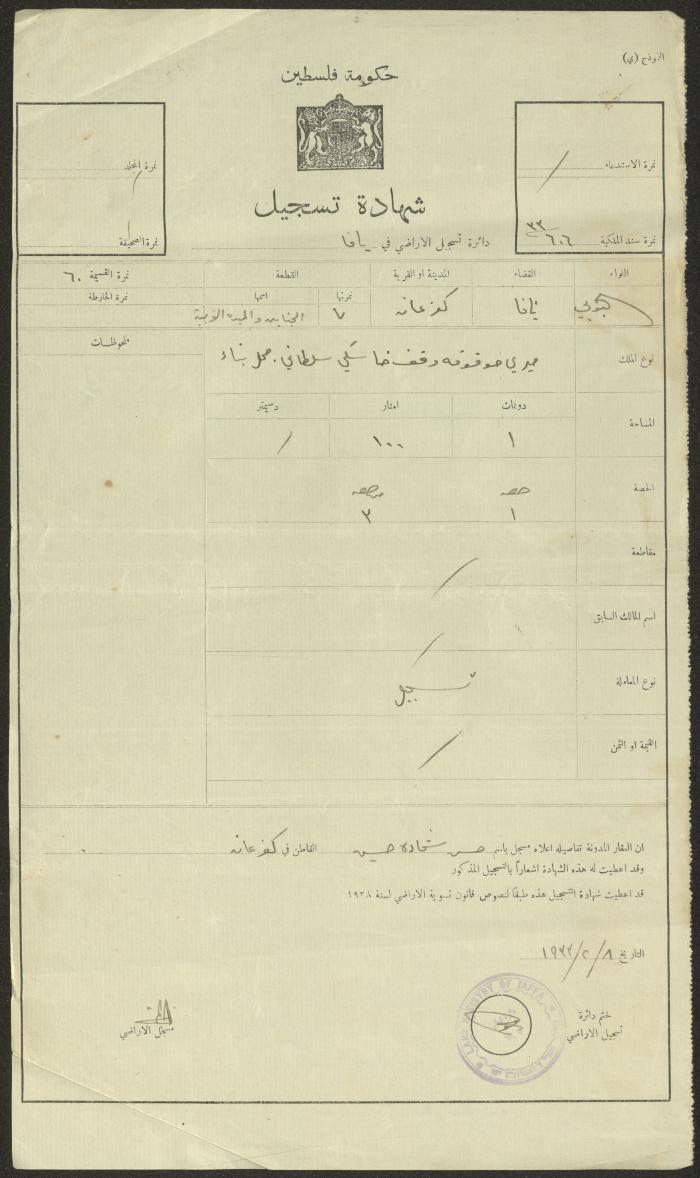 النموذج (ي)
حكومة فلسطين
نمرة الاستدعاء /
نمرة سند الملكية ٦٠٦/٣٣
نمرة المجلد /
نمرة الصحيفة
شهادة تسجيل
دائرة تسجيل الاراضي في يافا
اللواء القضاء المدينة او القرية القطعة نمرة القسيمة ٦٠
نمرتها اسمها نمرة الخارطة
الجنوبي يافا كفرعانه ٧
ملحوظات
نوع الملك ميري موقوفه وقف خاسكي سلطاني. محل بناء
دونمات امتار دسيمتر
المساحة ١ ١٠٠ /
الحصة حصه من حصه
١ ٣
مقاطعة /
اسم المالك السابق /
نوع المعاملة تسجيل
القيمة او الثمن /
ان العقار المدونة تفاصيله اعلاه مسجل باسم حسن شحاده حسين القاطن في كفرعانه
وقد اعطيت له هذه الشهادة اشعاراً بالتسجيل المذكور
قد اعطيت شهادة التسجيل هذه طبقًا لنصوص قانون تسوية الاراضي لسنة ١٩٢٨
التاريخ ١٩٣٣/٢/٨
ختم دائرة
تسجيل الاراضي
LAND REGISTRY OF JAFFA
مسجل الاراضي